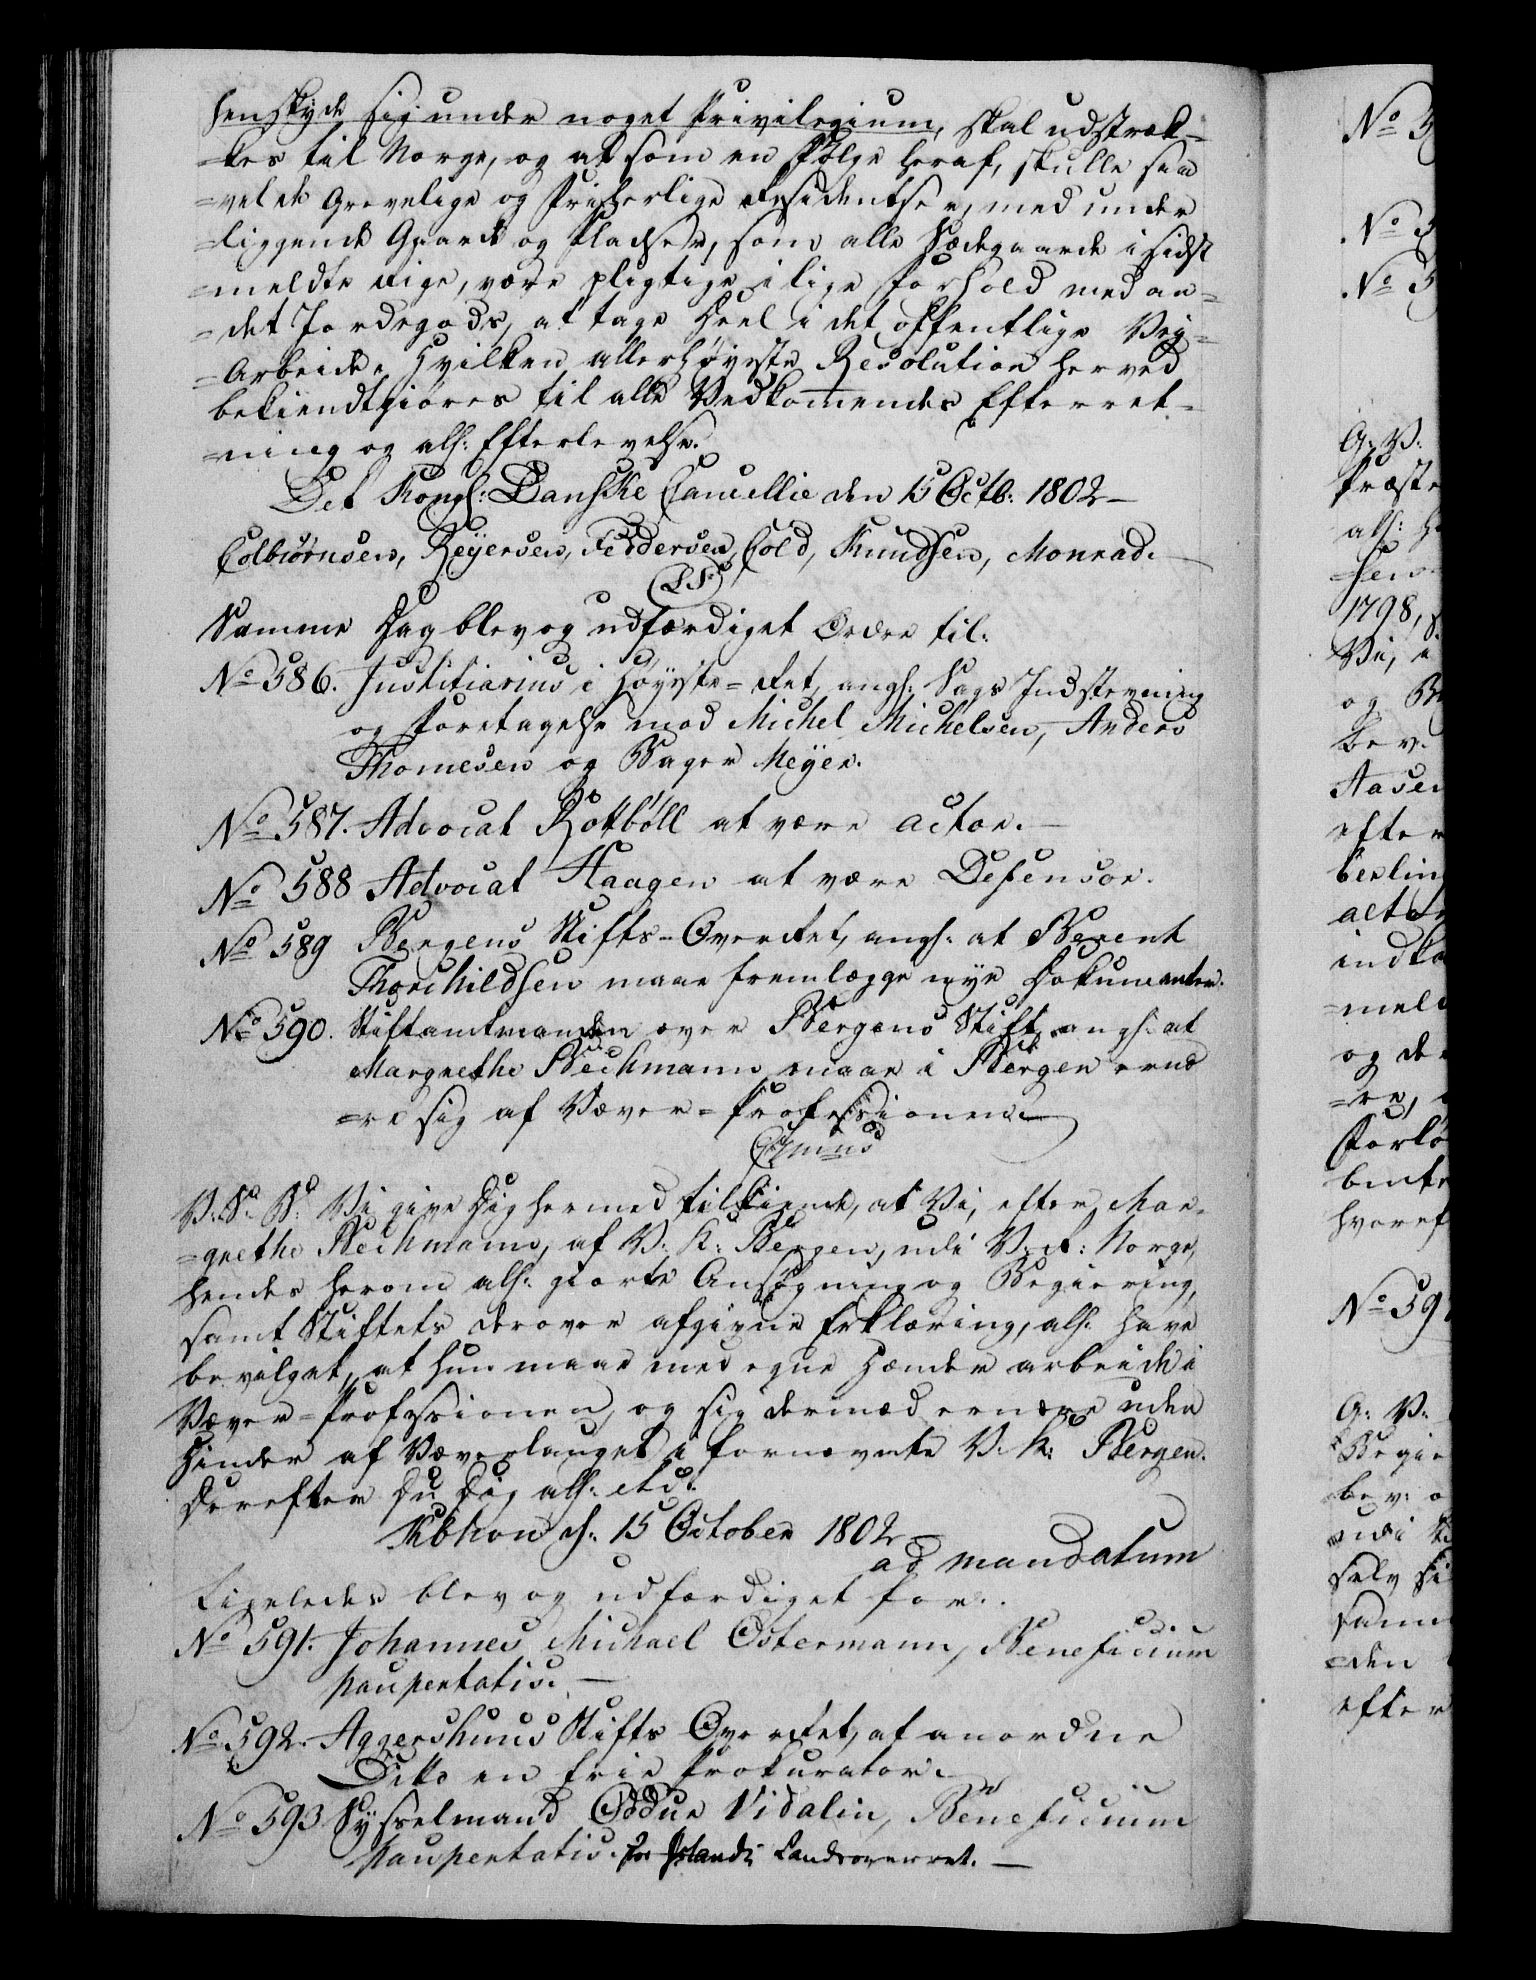 henskyde sig under noget Privilegium, skal udstræk-
=kes til Norge, og at som en Følge heraf, skulle saa
=vel de Grevelige og Friherlige Residentser, med under
=liggende Gaarde og Pladser, som alle Sædegaarde i sidst
=meldte Rige, være pligtige i lige Forhold med an=
=det Jordegods, at tage Deel i det offentlige Vej=
=Arbeide. Hvilken allerhøyeste Resolution herved
bekiendtgiøres til alle Vedkommendes Efterret=
=ning og alh: Efterlevelse.
Det Kongl: Danske Cancellie den 15 Octb: 1802 —
Colbiørnsen, Reyersen, Feddersen, Cold, Knudsen, Monrad.
(L.S.)
Samme Dag blev og udfærdiget Ordre til:
No 586. Justitiarius i Høyeste=Ret, angl: Sags Indstevning
og Foretagelse mod Michel Michelsen, Anders
Thomesen og Bager Meyer.
No 587. Advocat Rottbøll at være actor. —
No 588 Advocat Haagen at være Defensor.
No 589 Bergens Stifts=OverRet, angl: at Berent
Thorchildsen maae fremlægge nye Dokumenter.
No 590. Stiftamtmanden over Bergens Stift, angl: at
Margrethe Beichmann maae i Bergen ernæ
=re sig af Væver=Professionen. —
V. S. B: Vi give Dig hermed tilkiende, at Vi, efter Mar-
=grethe Beichmann, af V: K: Bergen, udi V: R: Norge,
hendes herom alh: giorte Ansøgning og Begiering,
samt Stiftets derover afgivne Erklæring, alh: have
bevilget, at hun maae med egne Hænder arbeide i
Væver=Professionen, og sig dermed ernære uden
Hinder af Væverlauget i fornævnte V. K: Bergen.
Derefter Du Dig alh: etc:
Kbhvn d: 15 October 1802 —
ad mandatum
Ligeledes blev og udfærdiget for:
No 591. Johannes Michael Ostermann, Beneficium
paupertatis. —
No 592. Aggershuus Stifts OverRet, at anordne
Ditto en frie Prokurator.
No 593 Sysselmand Oddur Vidalin, Beneficium
paupertatis. for Islands Landsoverret. —
No 5
No 5
No 5
G: V:
Præste
alh: h
1798,
Vii,
og B
bev:
Aasen
efter
Berlin
indka
=meld
og de
=re,
Forlø
hvoref
No 591
G: V:
Begie
bev: o
selv si
samm
=den
efter